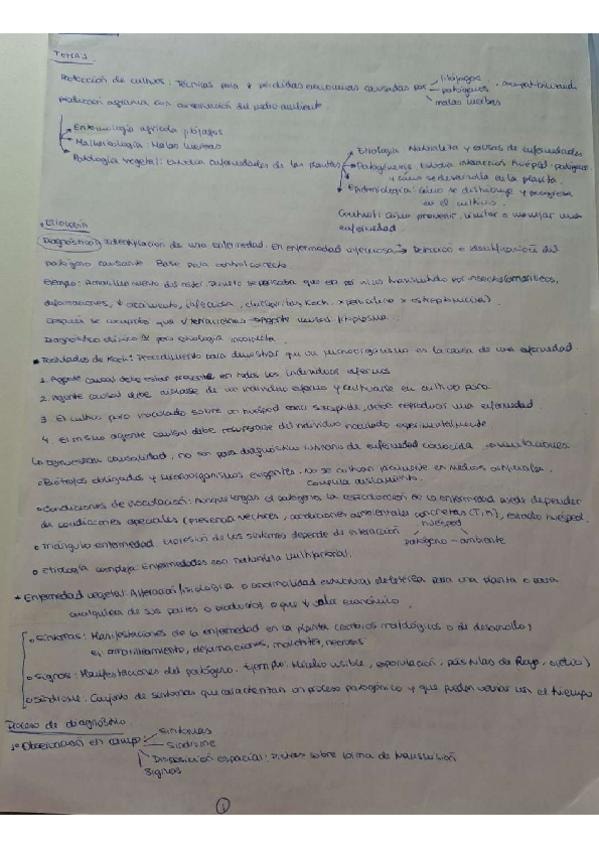 TEMA 1
Protección de cultivos: Técnicas para ↓ pérdidas económicas causadas por → fitófagos
→ patógenos, compatibilizando
→ malas hierbas
producción agraria con conservación del medio ambiente
→ Entomología agrícola fitófagos
→ Malherbología: Malas hierbas
→ Patología vegetal: Estudia enfermedades de las plantas
→ Etiología Naturaleza y causas de enfermedades
→ Patogénesis: Estudia interacción huésped-patógeno
y cómo se desarrolla en la planta.
→ Epidemiología: cómo se distribuye y progresa
en el cultivo.
Control: cómo prevenir, limitar o manejar una
enfermedad.
• Etiología
Diagnóstico: Identificación de una enfermedad. En enfermedad infecciosa → Detección e identificación del
patógeno causante. Base para control correcto
Ejemplo: Amarilleamiento del aster. pensaba que era por virus transmitido por insectos
deformaciones, Koch. penicilina
Después se comprobó que agente causal fitoplasma.
Diagnóstico clínico para etiología incorrecta.
• Postulados de Koch: Procedimiento para demostrar que un microorganismo es la causa de una enfermedad.
1. Agente causal debe estar presente en todos los individuos enfermos
2. Agente causal debe aislarse de un individuo enfermo y cultivarse en cultivo puro
3. El cultivo puro inoculado sobre un huésped sano susceptible, debe reproducir una enfermedad
4. El mismo agente causal debe recuperarse del individuo inoculado experimentalmente
Demuestran causalidad, no son para diagnóstico rutinario de enfermedad conocida. Limitaciones
• Biótrofos obligados y microorganismos exigentes. No se cultivan fácilmente en medios artificiales,
complica aislamiento.
• Condiciones de inoculación: Aunque tengas el patógeno la reproducción de la enfermedad puede depender
de condiciones especiales (presencia vectores, condiciones ambientales concretas (T, H), estado huésped.
• Triángulo enfermedad. Expresión de los síntomas depende de interacción
huésped
patógeno – ambiente
• Etiología compleja: Enfermedades con naturaleza multifactorial.
* Enfermedad vegetal: Alteración fisiológica o anormalidad estructural deletérea para una planta o para
cualquiera de sus partes o productos o que ↓ valor económico.
• Síntomas: Manifestaciones de la enfermedad en la planta (cambios morfológicos o de desarrollo)
Ej, amarilleamiento, deformaciones, marchitez, necrosis
• Signos: Manifestaciones del patógeno. Ejemplo: Micelio visible, esporulación, pústulas de Roya, oídio)
• Síndrome: Conjunto de síntomas que caracterizan un proceso patogénico y que pueden variar con el tiempo
Proceso de diagnóstico.
1º Observación en campo: → Síntomas
→ Síndrome
→ Disposición espacial: Pistas sobre forma de transmisión
Signos
1